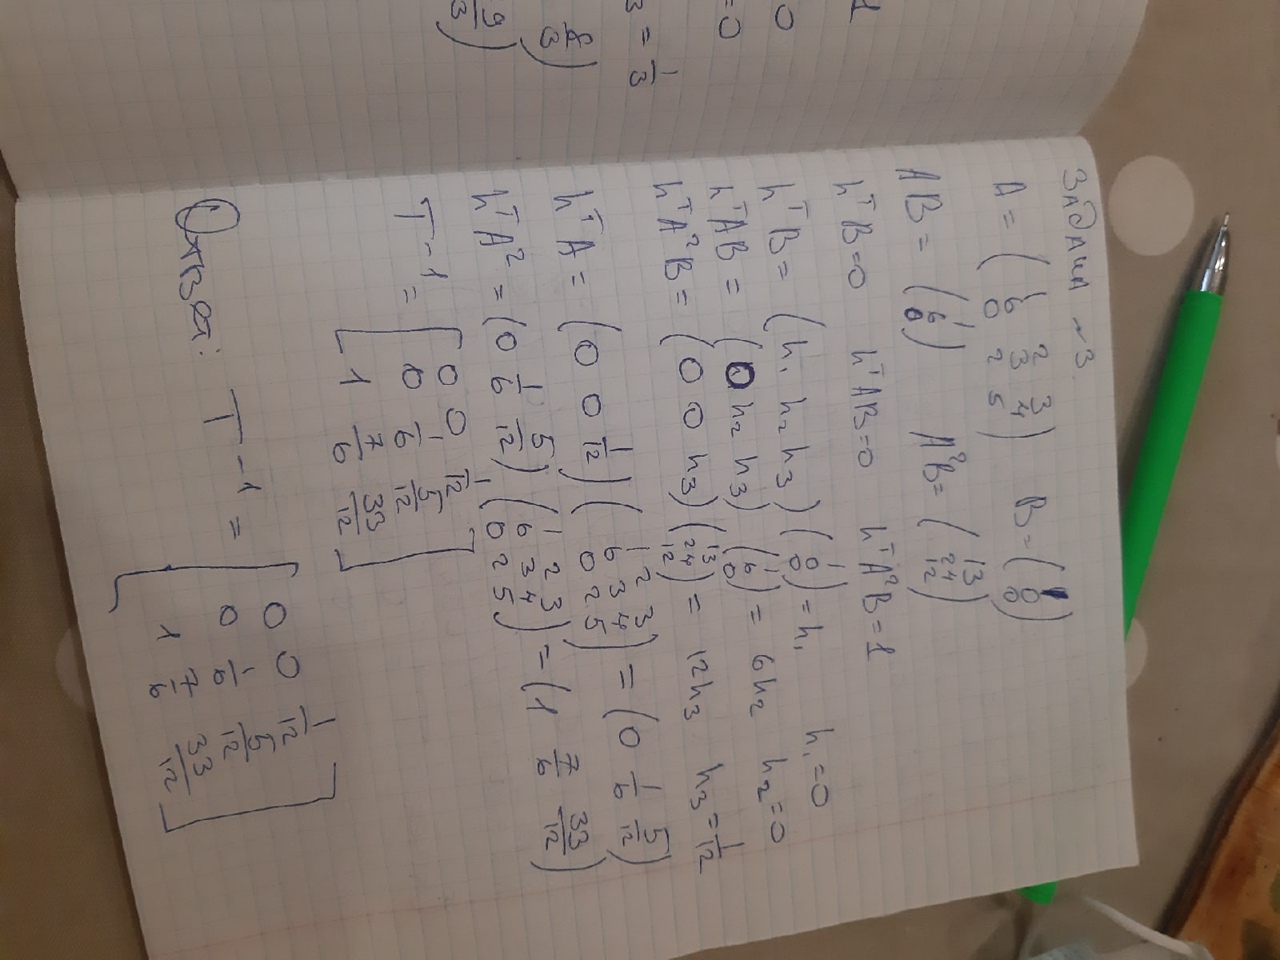 1
0
=0
3 = 1/3
8/3)
9/3)
ЗАДАЧА №3
A = (1 2 3; 6 3 4; 0 2 5) B = (1; 0; 0)
AB = (1; 6; 0) A²B = (13; 24; 12)
hᵀB=0 hᵀAB=0 hᵀA²B=1
hᵀB = (h₁ h₂ h₃) (1; 0; 0) = h₁ h₁=0
hᵀAB = (0 h₂ h₃) (1; 6; 0) = 6h₂ h₂=0
hᵀA²B = (0 0 h₃) (13; 24; 12) = 12h₃ h₃=1/12
hᵀA = (0 0 1/12) (1 2 3; 6 3 4; 0 2 5) = (0 1/6 5/12)
hᵀA² = (0 1/6 5/12) (1 2 3; 6 3 4; 0 2 5) = (1 7/6 33/12)
T⁻¹ = [0 0 1/12; 0 1/6 5/12; 1 7/6 33/12]
Ответ: T⁻¹ = [0 0 1/12; 0 1/6 5/12; 1 7/6 33/12]